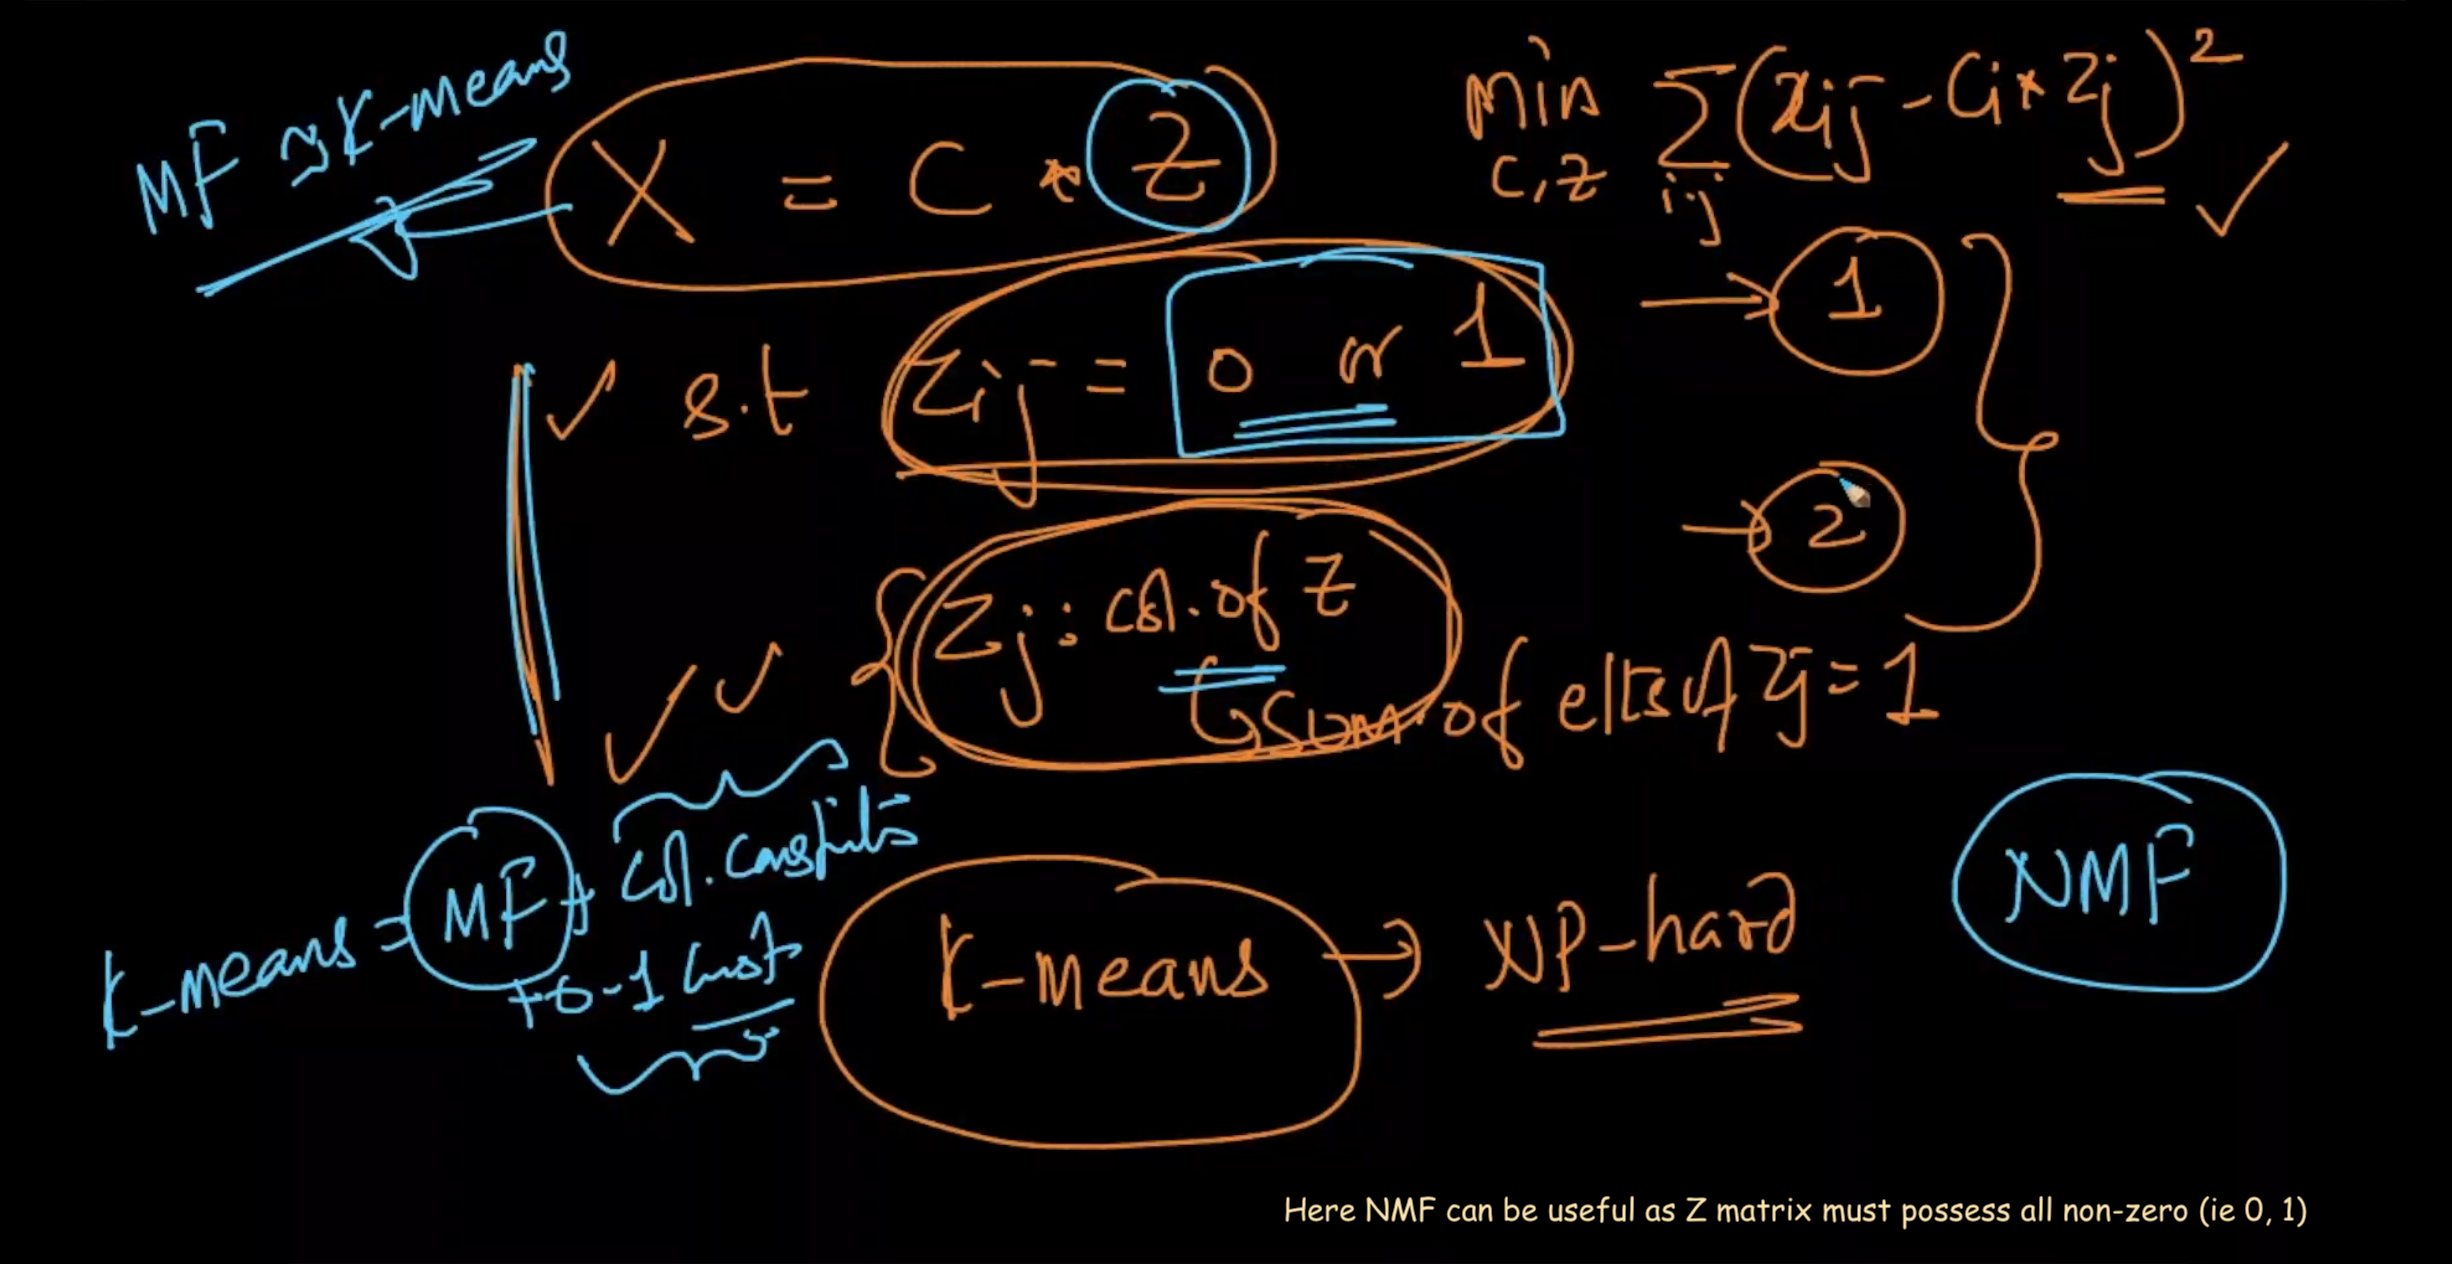 MF ≈ K-means
X = C * Z
min Σ (xij - Ci * Zj)²
C, Z ij
1
s.t Zij = 0 or 1
2
Zj : col. of Z
↳ sum of elts of Zj = 1
K-means = MF + col. constraints
+ 0-1 const
K-means → NP-hard
NMF
Here NMF can be useful as Z matrix must possess all non-zero (ie 0, 1)